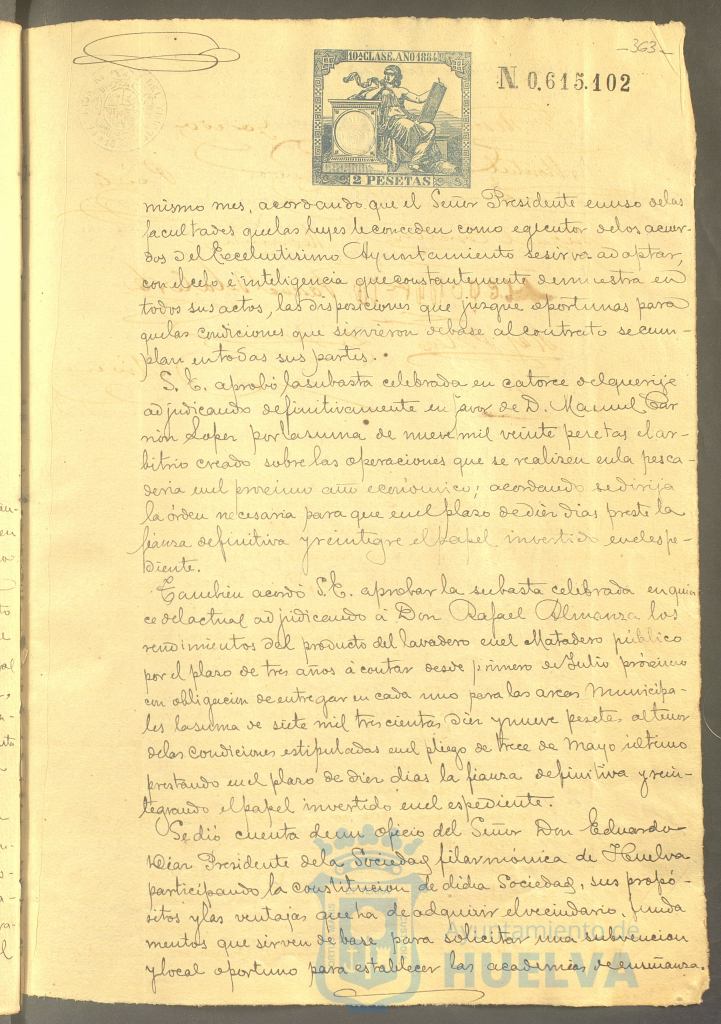 -363-
10ª CLASE. AÑO 1884
N. 0,615,102
2 PESETAS
mismo mes, acordando que el Señor Presidente en uso delas
facultades quelas leyes le conceden como egecutor delos acuer-
dos del Excelentisimo Ayuntamiento se sirva adaptar,
con el celo é inteligencia que constantemente demuestra en
todos sus actos, las disposiciones que juzgue oportunas para
quelas condiciones que sirvieron debase al contrato secum-
plan en todas sus partes.
S. E. aprobó la subasta celebrada en catorce del que rije
adjudicando definitivamente en favor de D. Manuel Car
rión Lopez por la suma de nueve mil veinte pesetas el ar-
bitrio creado sobre las operaciones que se realizen en la pesca-
deria en el proximo año económico; acordando se dirija
la órden necesaria para que en el plazo de diez dias preste la
fianza definitiva y reintegre el papel invertido en el espe-
diente.
Tambien acordó S. E. aprobar la subasta celebrada en quin
ce del actual adjudicando á Don Rafael Almanza los
rendimientos del producto del lavadero en el Matadero público
por el plazo de tres años á contar desde primero de Julio próximo
con obligacion de entregar en cada uno para las arcas Municipa-
les la suma de siete mil trescientas diez y nueve pesetas al tenor
delas condiciones estipuladas en el pliego de trece de Mayo último
prestando en el plazo de diez dias la fianza definitiva y rein-
tegrando el papel invertido en el espediente.
Se dió cuenta de un oficio del Señor Don Eduardo
Diaz Presidente dela Sociedad filarmónica de Huelva
participando la constitucion de dicha Sociedad, sus propó-
sitos y las ventajas que ha de adquirir el vecindario, funda
mentos que sirven de base para solicitar una subvencion
y local oportuno para establecer las academias de enseñanza.
Ayuntamiento de
HUELVA